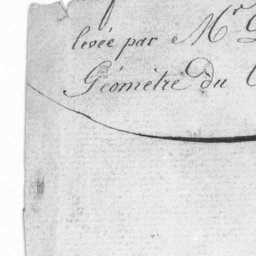 levée par Mr
Géomètre du